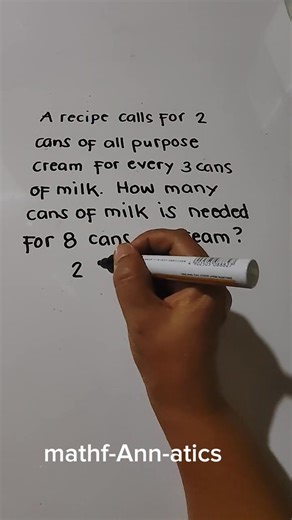 A recipe calls for 2
cans of all purpose
cream for every 3 cans
of milk. How many
cans of milk is needed
for 8 cans eam?
2
mathf-Ann-atics